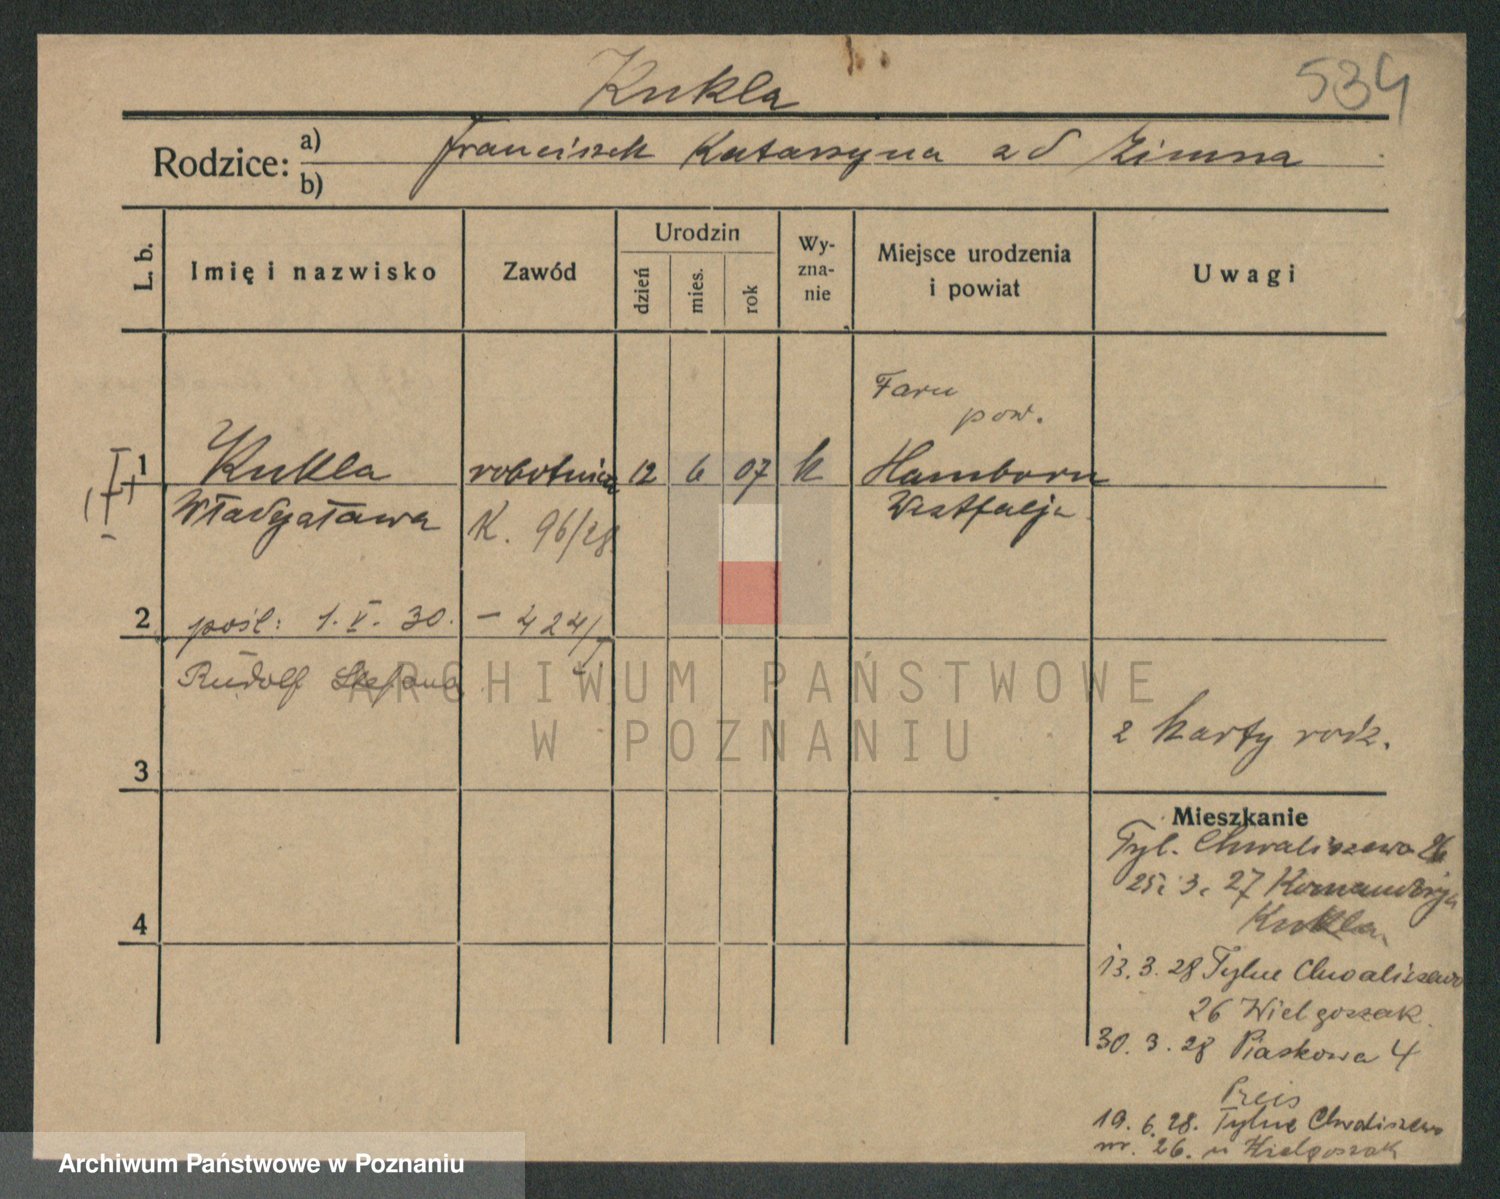 Kukla
534
Rodzice: a) Franciszek Katarzyna zd Zimna
b)
L. b.
Imię i nazwisko
Zawód
Urodzin
dzień
mies.
rok
Wy-
zna-
nie
Miejsce urodzenia
i powiat
Uwagi
Faru
pow.
I
1 Kukla robotnica 12 6 07 k Hamborn
Władysława K. 96/28 Westfalja
2 pośl: 1. V. 30. – 424/
Rudolf Stefana
2 karty rodz.
3
Mieszkanie
Tyl. Chwaliszewo 26
25. 3. 27 Komandorja
Kukla
4
13. 3. 28 Tylne Chwaliszewo
26 Wielgoszak.
30. 3. 28 Piaskowa 4
Preis
19. 6. 28. Tylne Chwaliszewo
nr. 26. u Wielgoszak
ARCHIWUM PAŃSTWOWE
W POZNANIU
Archiwum Państwowe w Poznaniu